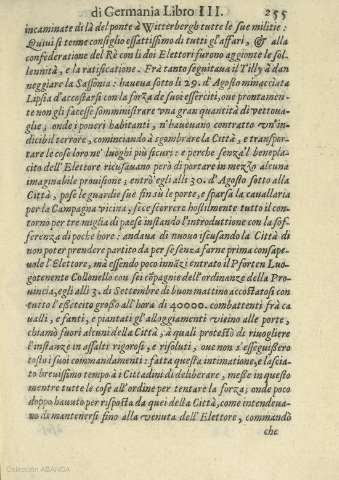 di Germania Libro III. 255
incaminate di là del ponte à VVitterbergh tutte le sue militie :
Quiui si tenne consiglio esattissimo di tutti gl'affari, & alla
confederatione del Rè con li doi Elettori furono aggionte le sol-
lennità, e la ratificatione. Frà tanto seguitaua il Tilly à dan
neggiare la Sassonia : haueua sotto li 29. d'Agosto minacciata
Lipsia d'accostarsi con la forza de suoi esserciti, oue prontamen-
te non gli facesse somministrare vna gran quantità di vettoua-
glie, onde i poueri habitanti, n'haueuano contratto vn'in-
dicibil terrore, cominciando à sgombrare la Città, e transpor-
tare le cose loro ne' luoghi più sicuri : e perche senza'l benepla-
cito dell'Elettore ricusauano però di portare in mezzo alcuna
imaginabile prouisione ; entrò egli alli 30. d'Agosto sotto alla
Città, pose le guardie sue fin sù le porte, e sparsa la cauallaria
per la Campagna vicina, fece scorrere hostilmente tutto il con-
torno per tre miglia di paese instando l'introduttione con la sof-
ferenza di poche hore : andaua di nuouo iscusando la Città di
non poter prender partito da per se senza farne prima consape-
uole l'Elettore, mà essendo poco innāzi entrato il Pforten Luo-
gotenente Collonello con sei cōpagnie dell'ordinanze della Pro-
uincia, egli alli 3. di Settembre di buon mattino accostatosi con
tutto l'essercito grosso all'hora di 40000. combattenti frà ca
ualli, e fanti, e piantati gl'alloggiamenti vicino alle porte,
chiamò fuori alcuni della Città, à quali protestò di riuogliere
l'instanze in assalti rigorosi, e risoluti, oue non s'esseguissero
tosto i suoi commandamenti : fatta questa intimatione, e lascia-
to breuissimo tempo à i Cittadini di deliberare, messe in questo
mentre tutte le cose all'ordine per tentare la forza ; onde poco
doppo hauuto per risposta da quei della Città, come intendeua-
no di mantenersi fino alla venuta dell'Elettore, commandò
che
Colección ABANCA